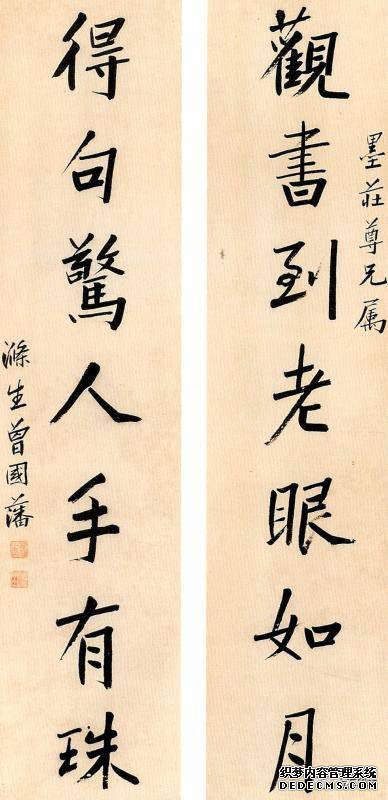 墨莊尊兄属
觀書到老眼如月
得句驚人手有珠
滌生曾國藩
织梦内容管理系统
DEDECMS.COM